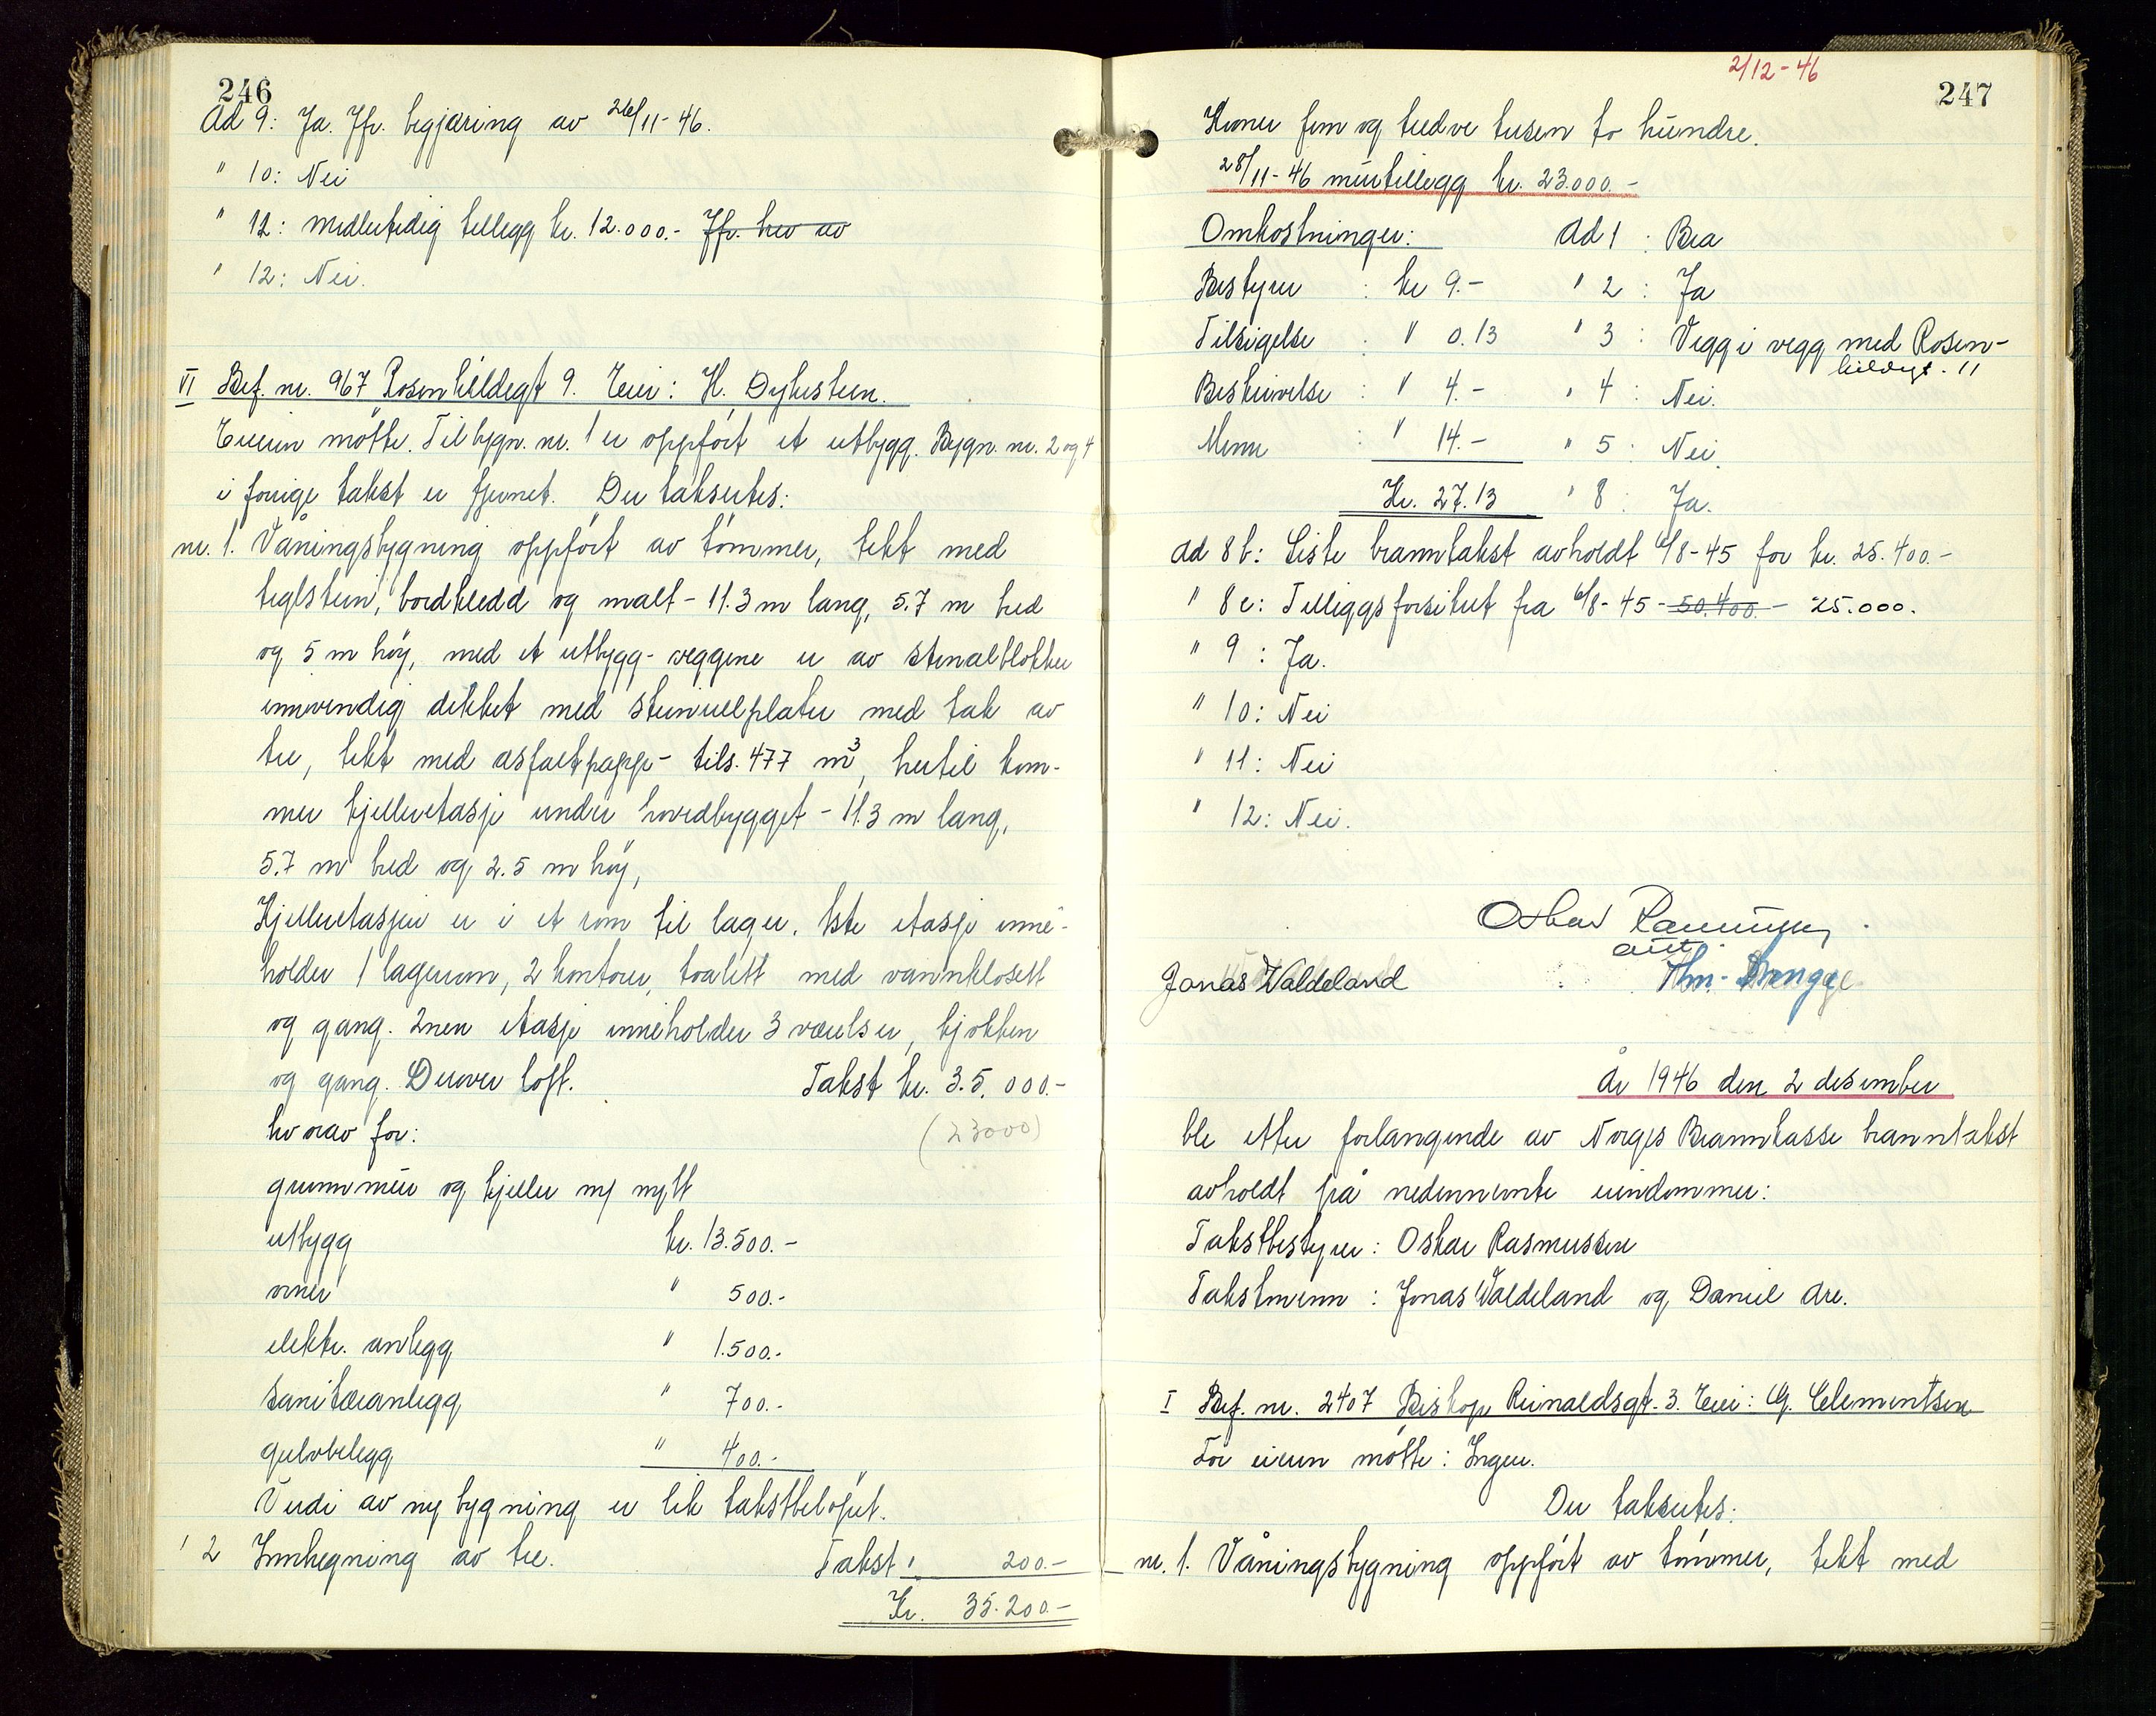 246
Ad 9: Ja. Jfr. begjæring av 26/11-46.
" 10: Nei
" 11: Midlertidig tillegg kr. 12.000.- Jfr. brev av
" 12: Nei.
VI Bef. nr. 967 Rosenkildegt 9. Eier: H. Dybesteen.
Eieren møtte. Til bygn. nr. 1 er oppført et utbygg. Bygn. nr. 2 og 4
i forrige takst er fjernet. Der takseres:
nr. 1. Våningsbygning oppført av tømmer, tekt med
teglstein, bordkledd og malt - 11.3 m lang, 5.7 m bred
og 5 m høy, med et utbygg - veggene er av stenalblokker
innvendig dekket med steinullplater med tak av
tre, tekt med asfaltpapp - tils. 477 m³, hertil kom-
mer kjelleretasje under hovedbygget - 11.3 m lang,
5.7 m bred og 2.5 m høy,
Kjelleretasjen er i et rom til lager. 1ste etasje inne-
holder 1 lagerrom, 2 kontorer, toalett med vannklosett
og gang. 2nen etasje inneholder 3 værelser, kjøkken
og gang. Derover loft. Takst kr. 35.000.-
hvorav for: (23000)
grunnmur og kjeller m/ nytt
utbygg kr. 13.500.-
ovner " 500.-
elektr. anlegg " 1.500.-
sanitæranlegg " 700.-
gulvbelegg " 400.-
Verdi av ny bygning er lik takstbeløpet.
' 2 Innhegning av tre. Takst " 200.-
Kr. 35.200.-
2/12-46
247
Kroner fem og tredve tusen to hundre.
28/11-46 murtillegg kr. 23.000.-
Omkostninger: Ad 1 : Bra
Bestyrer : kr 9.- " 2 : Ja
Tilsigelse : " 0.13 " 3 : Vegg i vegg med Rosen-
kildegt. 11
Beskrivelse : " 4.- " 4 : Nei.
Menn : " 14.- " 5 : Nei.
Kr. 27.13 " 8 : Ja.
Ad 8 b: Siste branntakst avholdt 6/8-45 for kr. 25.400.-
" 8 c: Tilleggsforsikret fra 6/8-45 - 50.400.- 25.000.
" 9 : Ja.
" 10: Nei
" 11: Nei
" 12: Nei.
Oskar Rasmussen
Jonas Waldeland
År 1946 den 2 desember
ble etter forlangende av Norges Brannkasse branntakst
avholdt på nedennevnte eiendommer:
Takstbestyrer: Oskar Rasmussen
Takstmenn : Jonas Waldeland og Daniel Are.
I Bef. nr. 2407 Biskop Reinaldsgt. 3. Eier: G. Clementsen
For eieren møtte: Ingen.
Der takseres:
nr. 1. Våningsbygning oppført av tømmer, tekt med